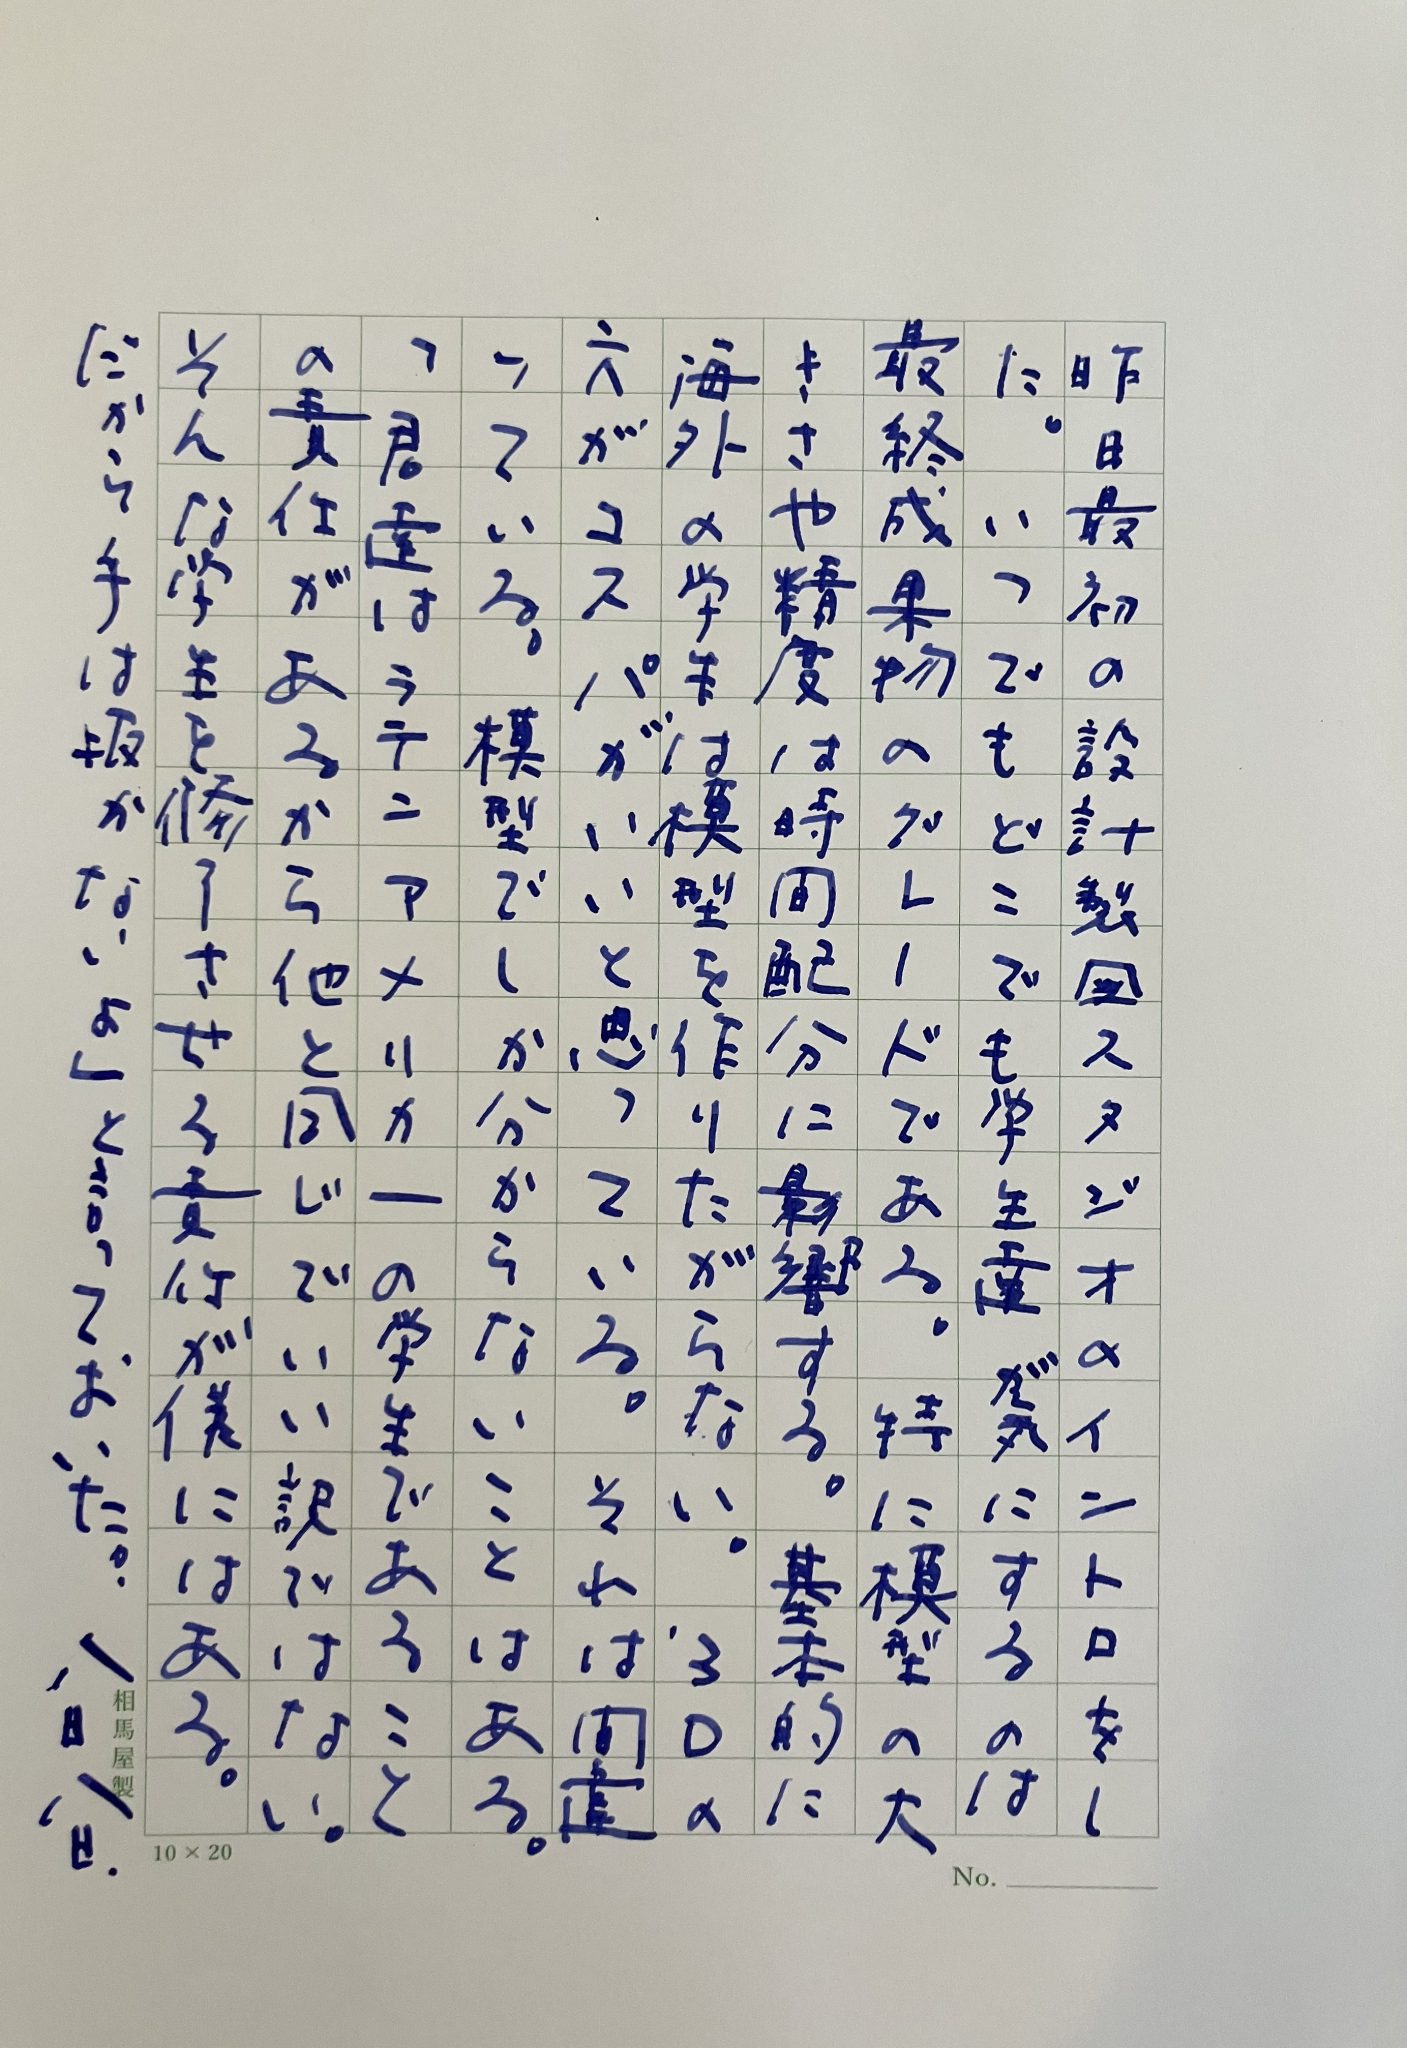 昨日最初の設計製図スタジオのイントロをし
た。いつでもどこでも学生達が気にするのは
最終成果物のグレードである。特に模型の大
きさや精度は時間配分に影響する。基本的に
海外の学生は模型を作りたがらない。3Dの
方がコスパがいいと思っている。それは間違
っている。模型でしか分からないことはある。
「君達はラテンアメリカ一の学生であること
の責任があるから他と同じでいい訳ではない。
そんな学生を修了させる責任が僕にはある。
だから手は抜かないよ」と言っておいた。八月八日.
相馬屋製
10×20
No.